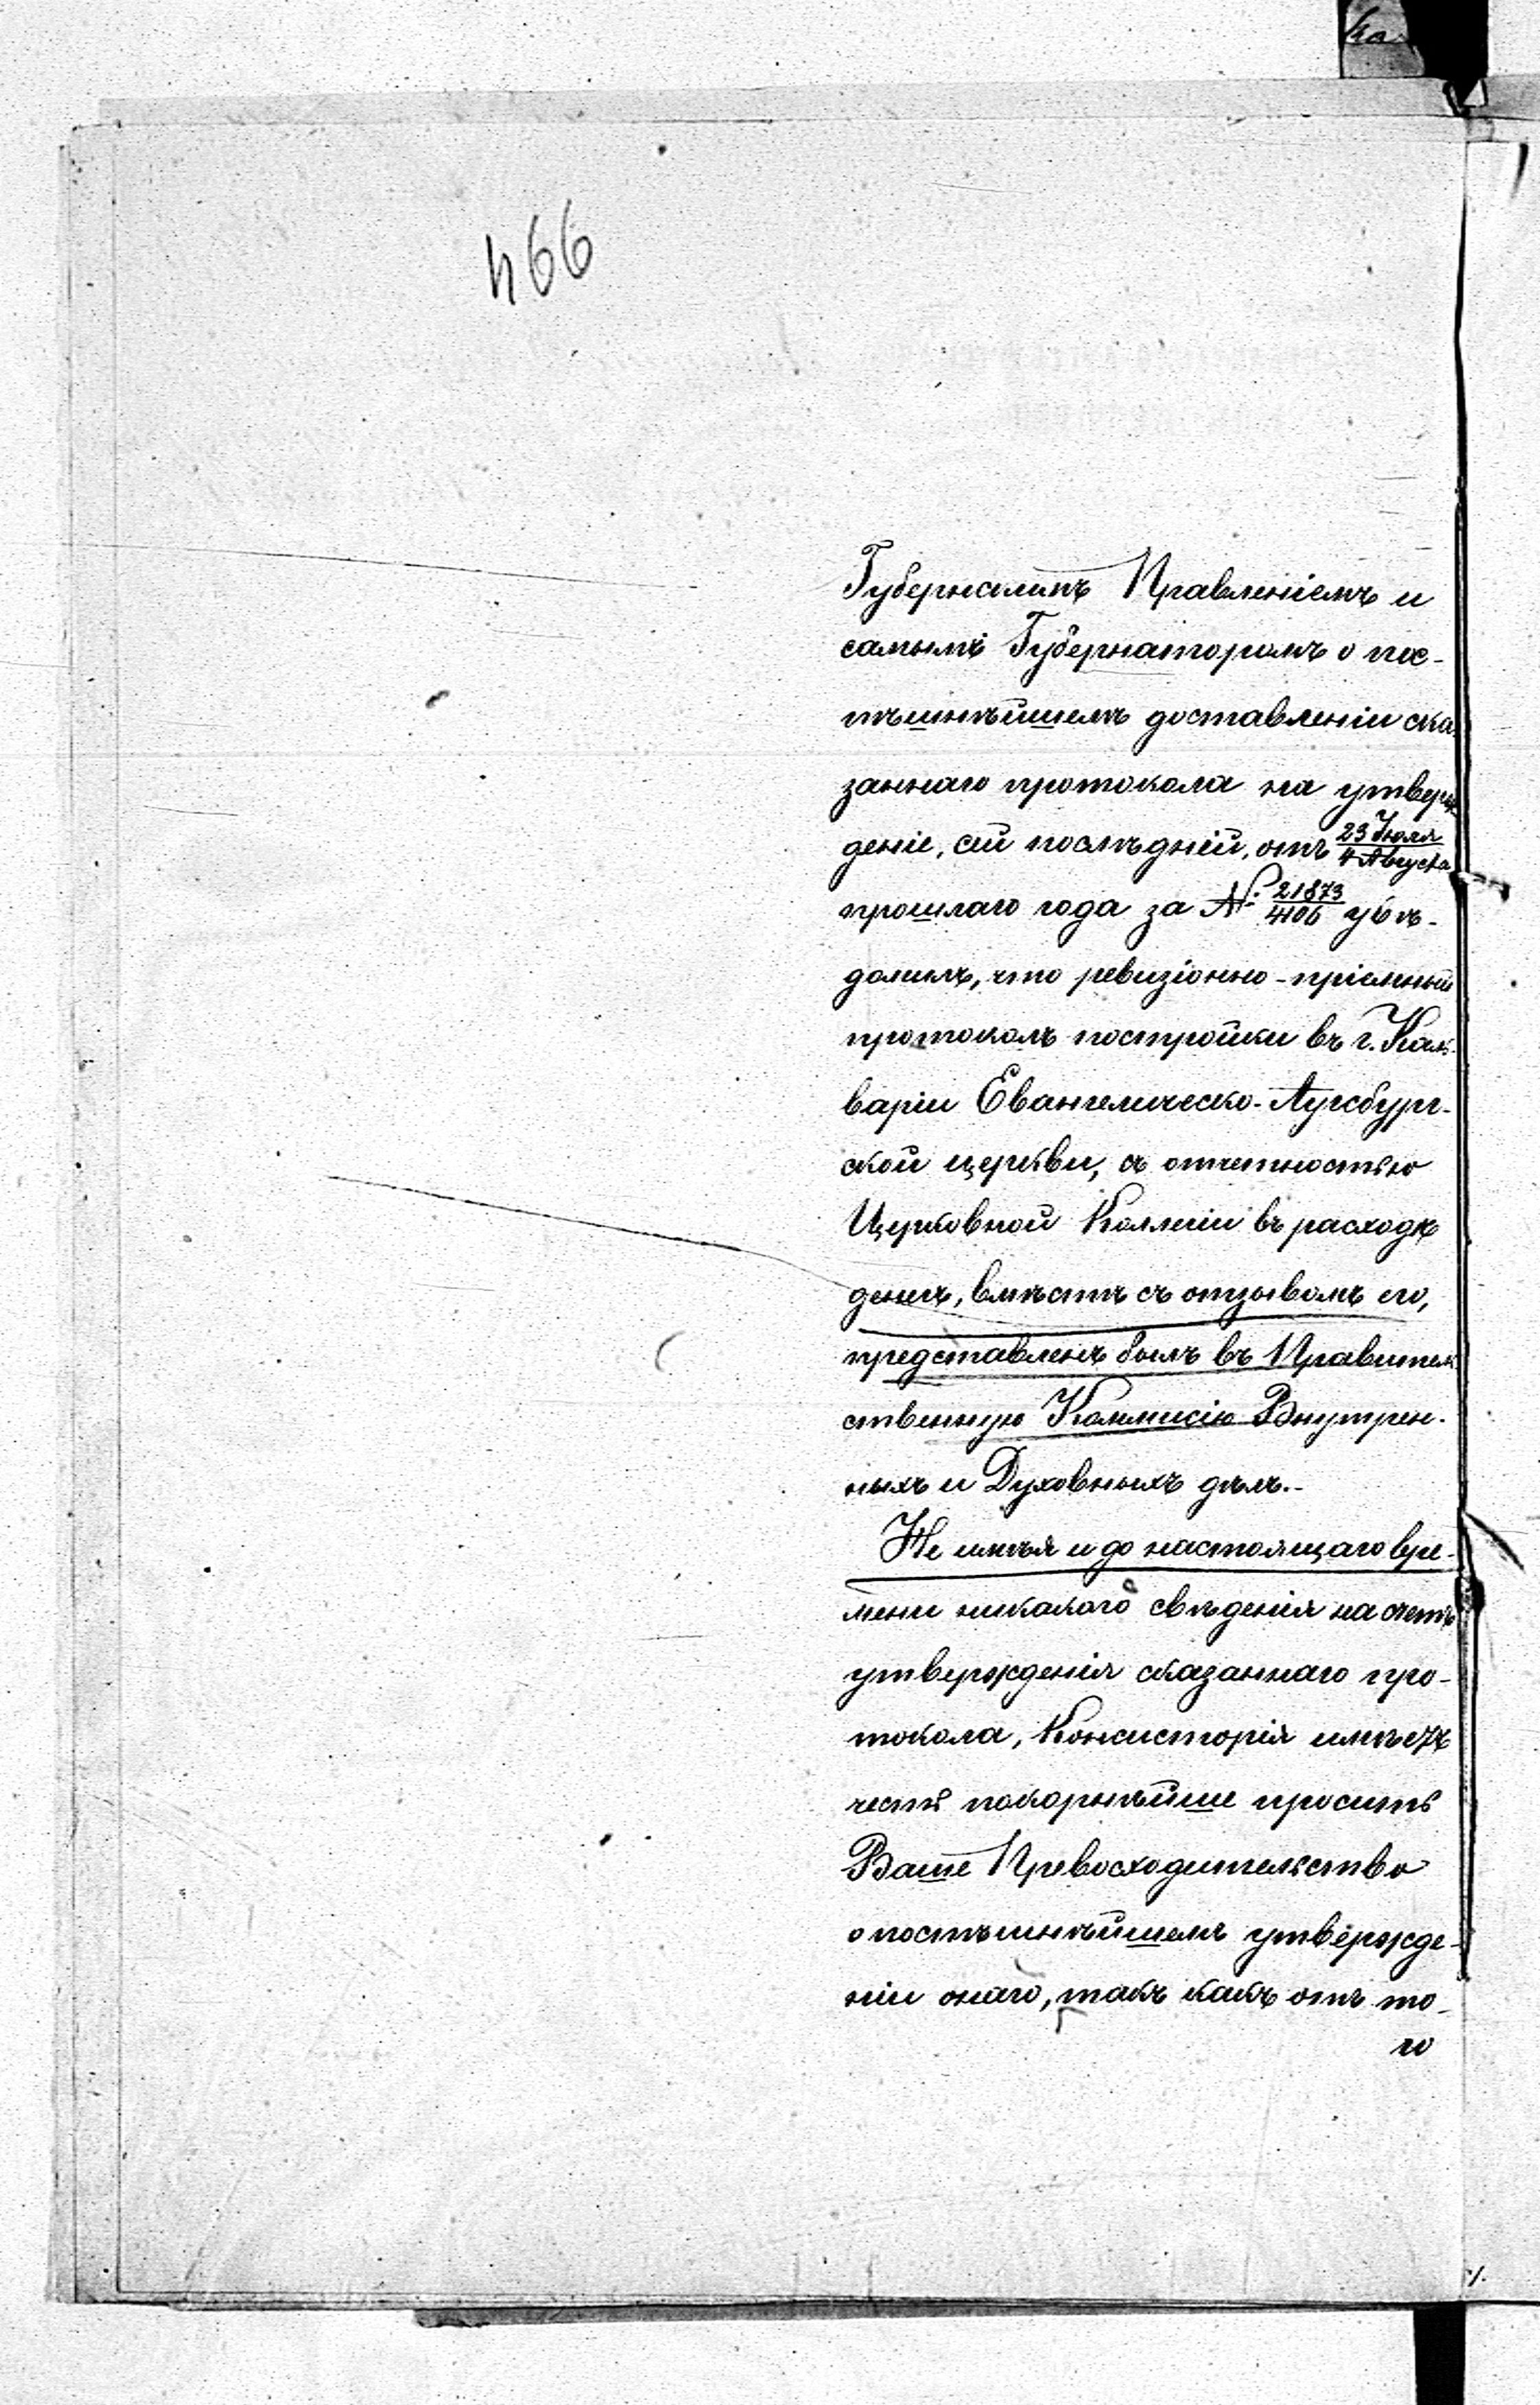 466
Губернскимъ Правленіемъ и
самымъ Губернаторомъ о пос-
пѣшнѣйшемъ доставленіи ска-
заннаго протокола на утверж
деніе, сей послѣдній, отъ 23 Іюля / 4 Августа
прошлаго года за № 21873/4106 увѣ-
домилъ, что ревизіонно-пріемный
протоколъ постройки въ г. Каль-
варіи Евангелическо-Аугсбург-
ской церкви, съ отчетностью
Церковной Коллегіи въ расходѣ
денегъ, вмѣстѣ съ отзывомъ его,
представленъ былъ въ Правитель
ственную Коммисію Внутрен-
ныхъ и Духовныхъ дѣлъ.-
Не имѣя и до настоящаго вре-
мени никакого свѣденія на счетъ
утвержденія сказаннаго про-
токола, Консисторія имѣетъ
честь покорнѣйше просить
Ваше Превосходительство
о поспѣшнѣйшемъ утвержде-
ніи онаго, такъ какъ отъ то-
го